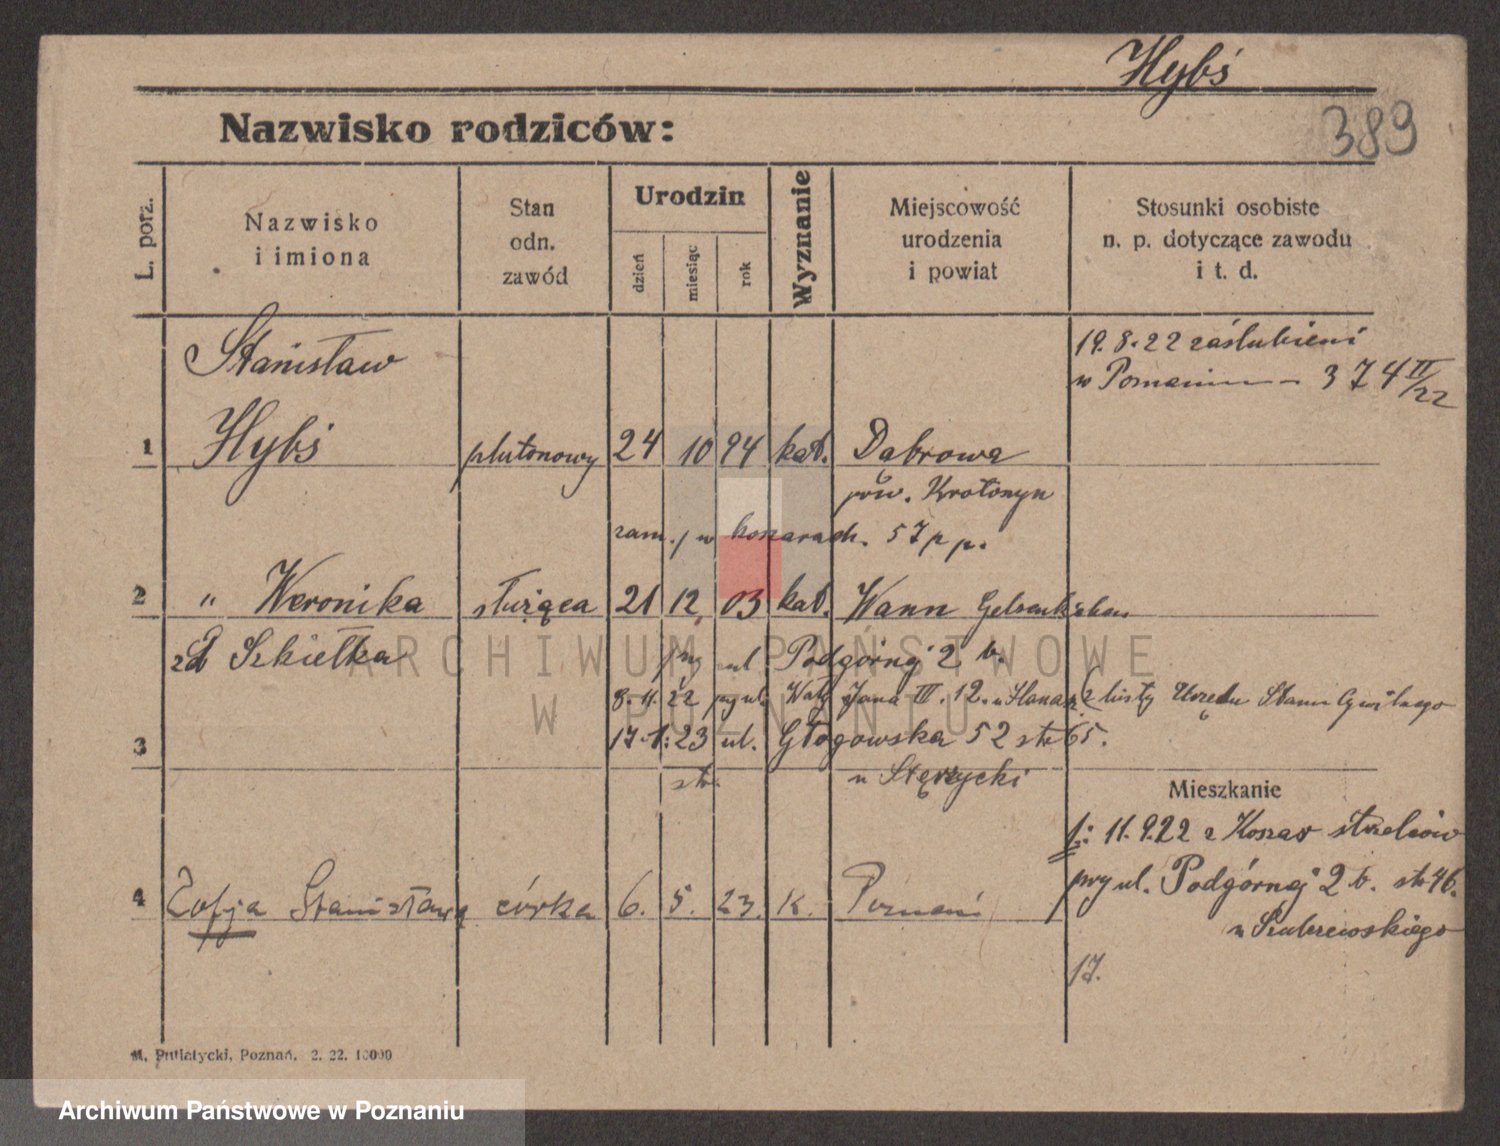 Hybś
389
Nazwisko rodziców:
L. porz.
Nazwisko
i imiona
Stan
odn.
zawód
Urodzin
dzień
miesiąc
rok
Wyznanie
Miejscowość
urodzenia
i powiat
Stosunki osobiste
n. p. dotyczące zawodu
i t. d.
19.8.22 zaślubieni
w Poznaniu — 374 II/22
Stanisław
1 Hybś plutonowy 24 10 94 kat. Dąbrowa
pow. Krotoszyn
zam. w koszarach. 57 p p.
2 " Weronika służąca 21 12 03 kat. Wann Gelsenkirchen
zd Szkiełka
przy ul Podgórnej 2 b.
8.11.22 przy ul. Wały Jana III. 12. (z listy Urzędu Stanu Cywilnego
3 17.1.23 ul. Głogowska 52 str 65.
str. u Stęrzycki
Mieszkanie
1: 11.9.22 z Koszar strzelców
przy ul. Podgórnej 2 b. str 46.
4 Zofja Stanisława córka 6. 5. 23. K. Poznań
17.
M. Putiatycki, Poznań. 2. 22. 10000
ARCHIWUM PAŃSTWOWE
W POZNANIU
Archiwum Państwowe w Poznaniu